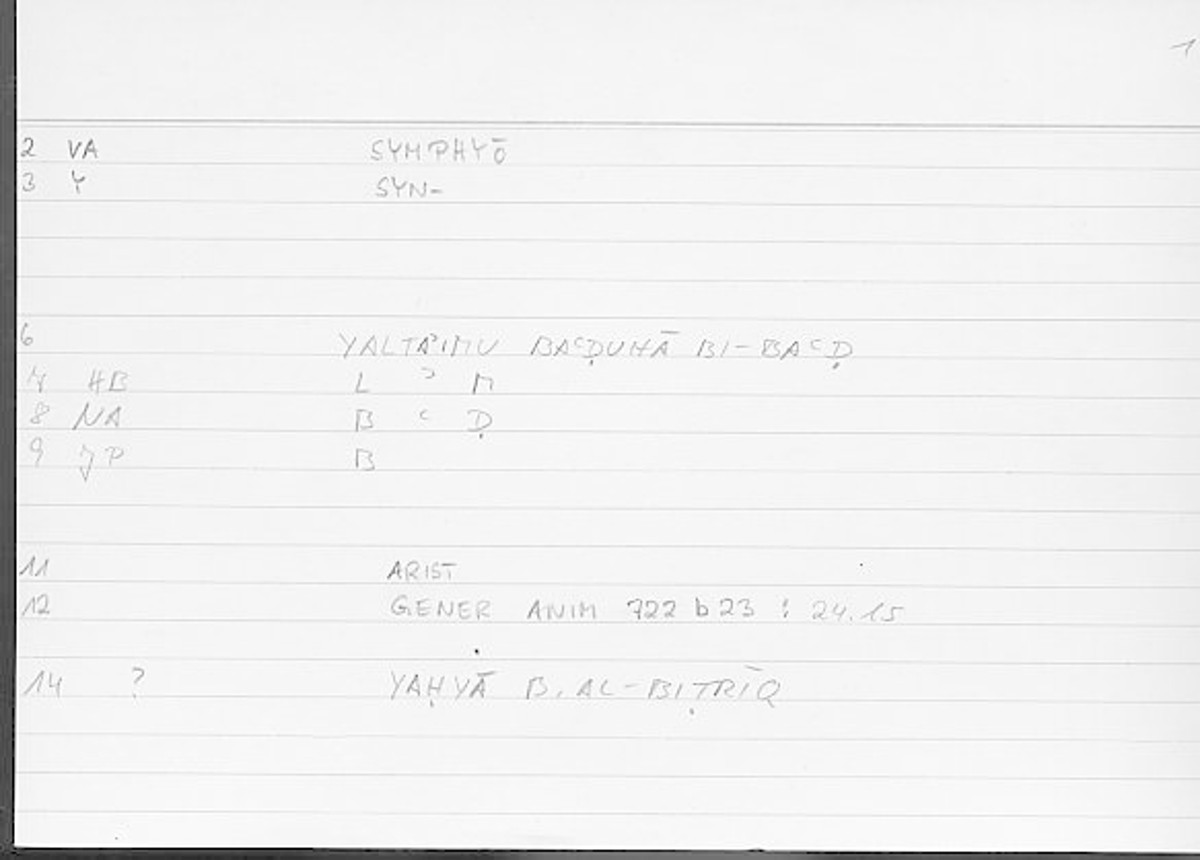 1
2 VA SYMPHYŌ
3 Y SYN-
6 YALTAʾIMU BAʿḌUHĀ BI-BAʿḌ
7 HB L ʾ M
8 NA B ʿ Ḍ
9 JP B
11 ARIST
12 GENER ANIM 722 b 23 : 24.15
14 ? YAḤYĀ B. AL-BIṬRĪQ